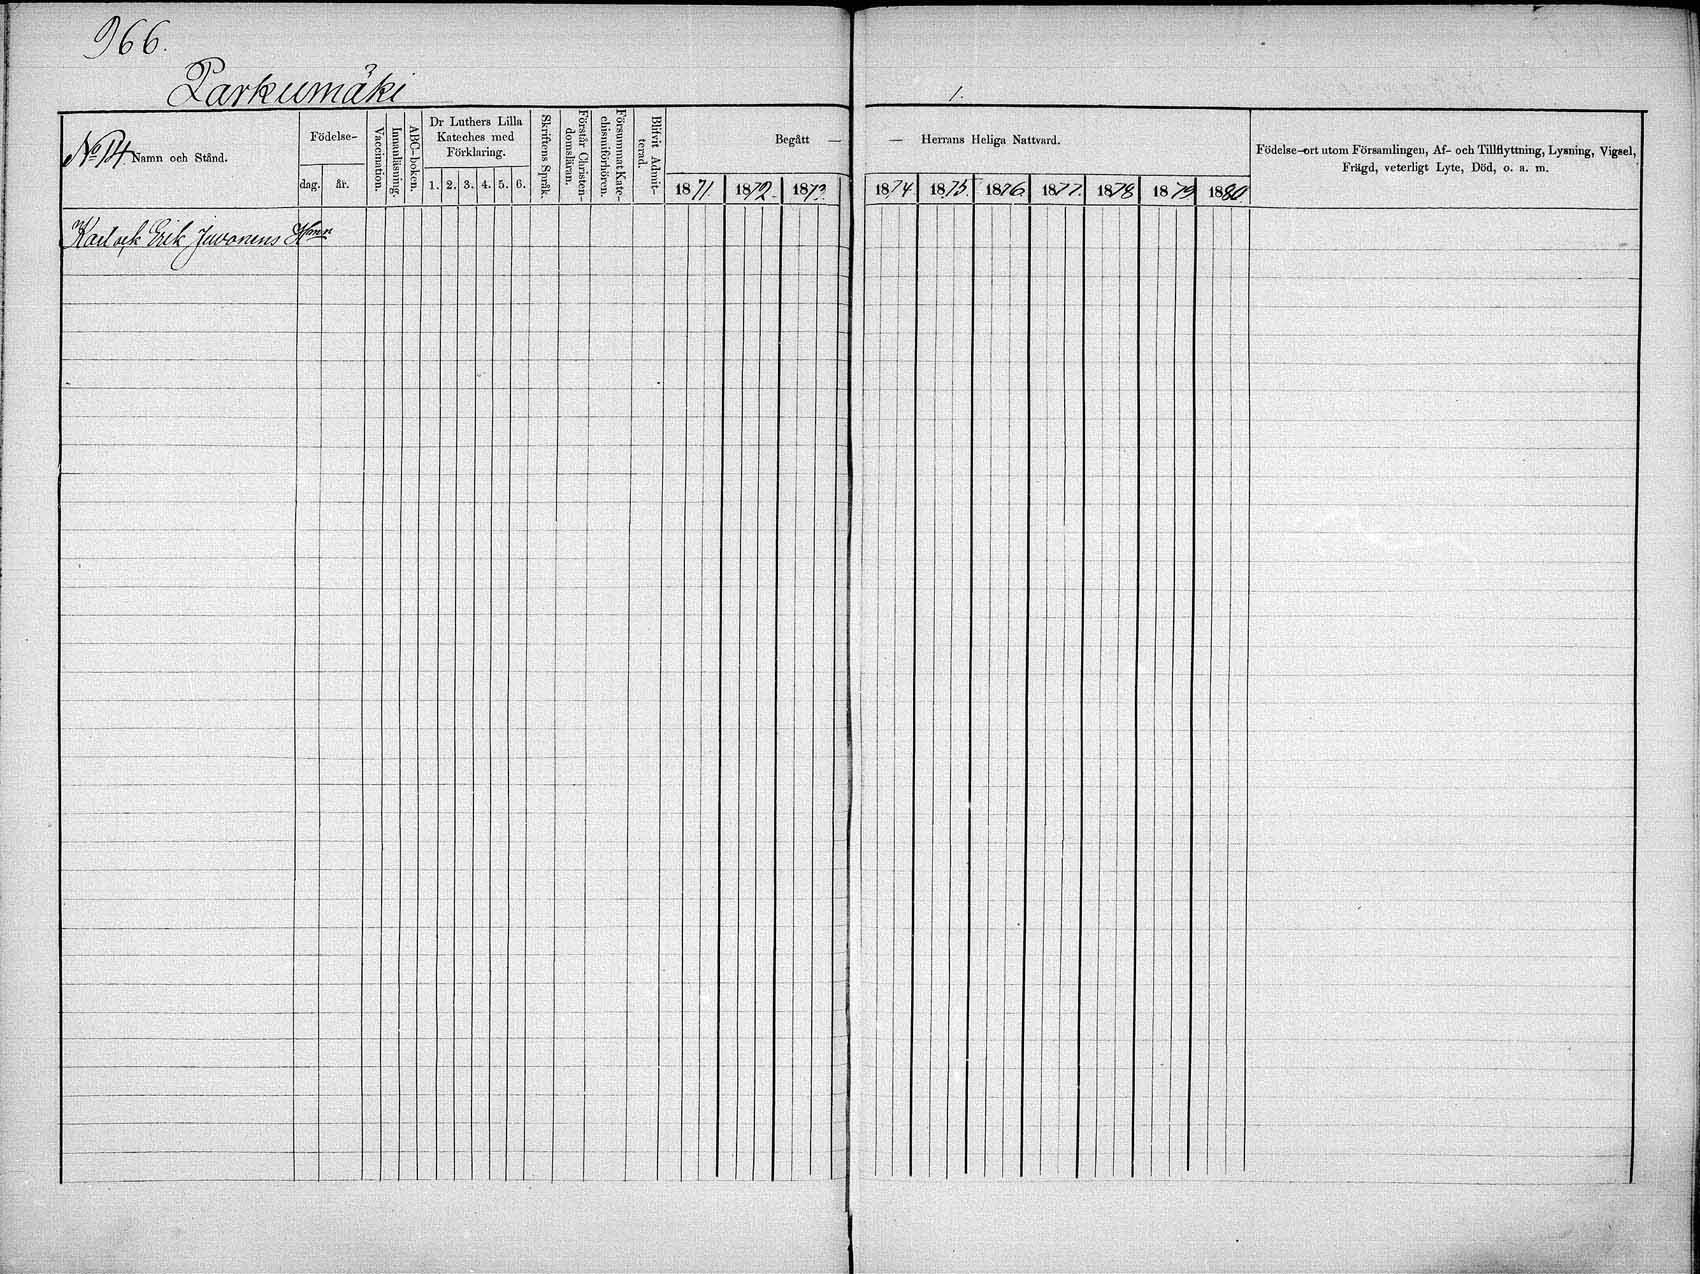 966.
Parkumäki
1.
No 14.
Namn och Stånd.
Födelse-
dag. år.
Vaccination.
Innanläsning.
ABC-boken.
Dr Luthers Lilla
Kateches med
Förklaring.
1. 2. 3. 4. 5. 6.
Skriftens Språk.
Förstår Christen-
domsläran.
Försummat Kate-
chismiförhören.
Blifvit Admit-
terad.
Begått —
1871 1872. 1873.
— Herrans Heliga Nattvard.
1874 1875. 1876 1877. 1878 1879 1880
Födelse-ort utom Församlingen, Af- och Tillflyttning, Lysning, Vigsel,
Frägd, veterligt Lyte, Död, o. a. m.
Karl och Erik Juvonens Hmn